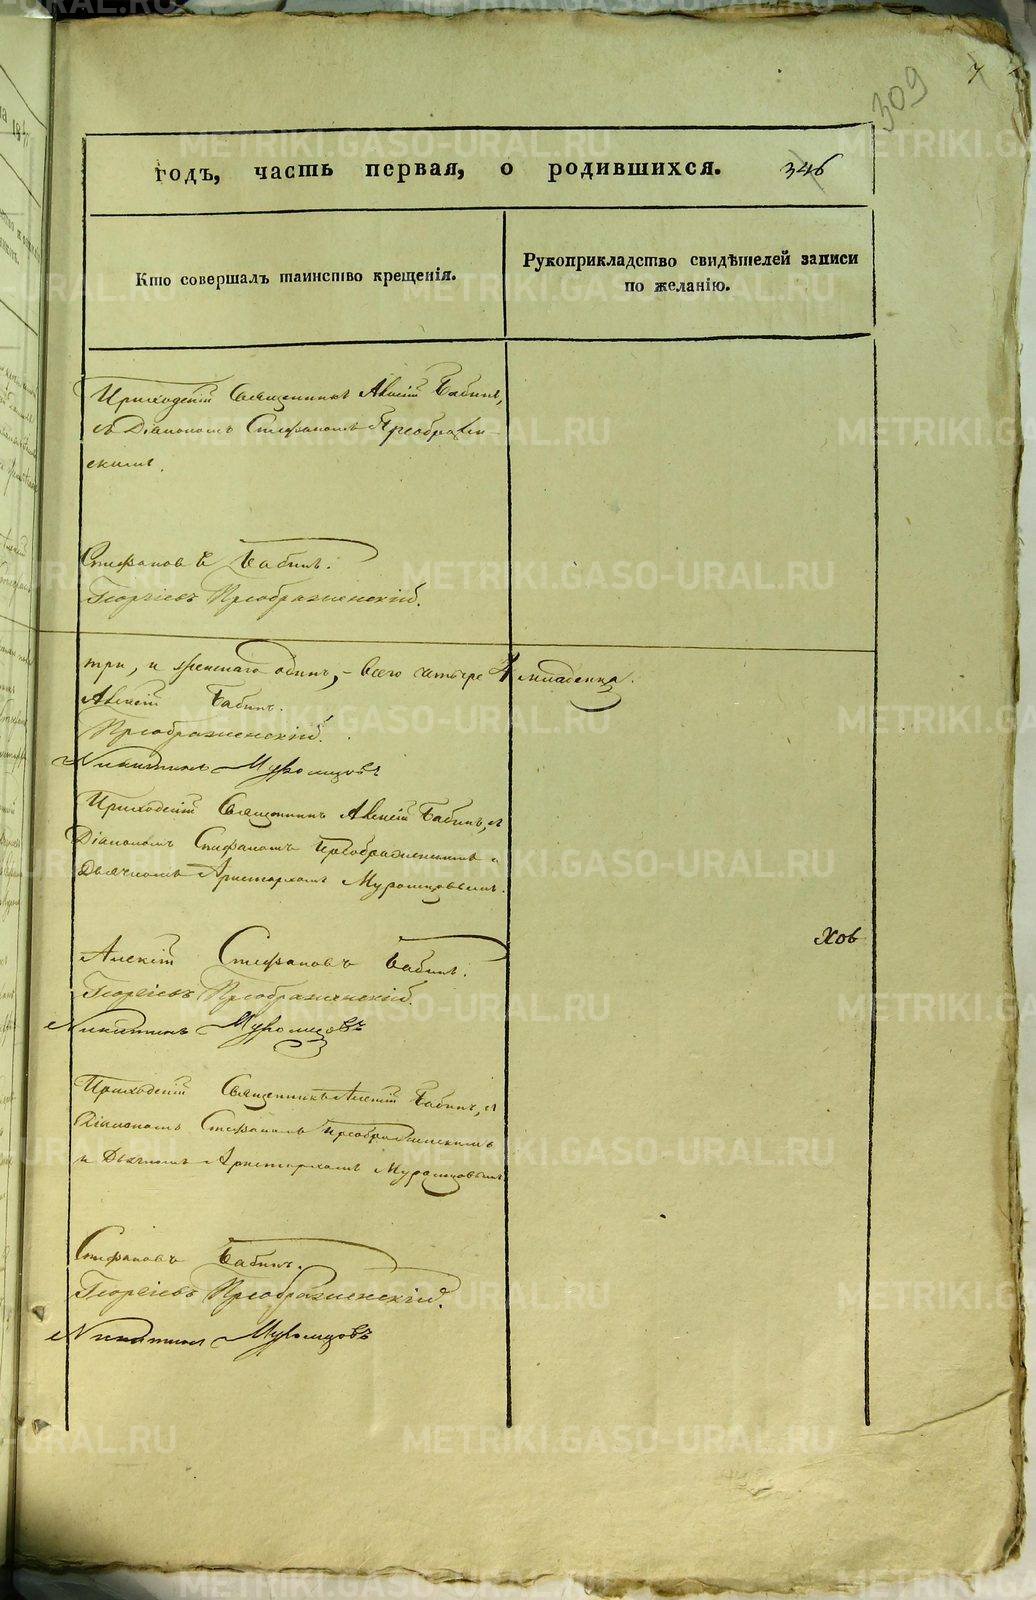 309
годъ, часть первая, о родившихся. 346
Кто совершалъ таинство крещенія.
Рукоприкладство свидѣтелей записи
по желанію.
Приходскій Священникъ Алексій Бабинъ,
съ Діакономъ Стефаномъ Преображен-
скимъ.
Стефановъ Бабинъ.
Георгіевъ Преображенскій.
три, и женскаго одинъ, - всего четыре 4 младенца.
Алексій Бабинъ.
Преображенскій.
Никитинъ Муромцовъ
Приходскій Священникъ Алексій Бабинъ, съ
Діакономъ Стефаномъ Преображенскимъ и
Дьячкомъ Аристархомъ Муромцовымъ.
Хов
Алексій Стефановъ Бабинъ.
Георгіевъ Преображенскій.
Никитинъ Муромцовъ
Приходскій Священникъ Алексій Бабинъ, съ
Діакономъ Стефаномъ Преображенскимъ
и Дьячкомъ Аристархомъ Муромцовымъ
Стефановъ Бабинъ.
Георгіевъ Преображенскій.
Никитинъ Муромцовъ
METRIKI.GASO-URAL.RU